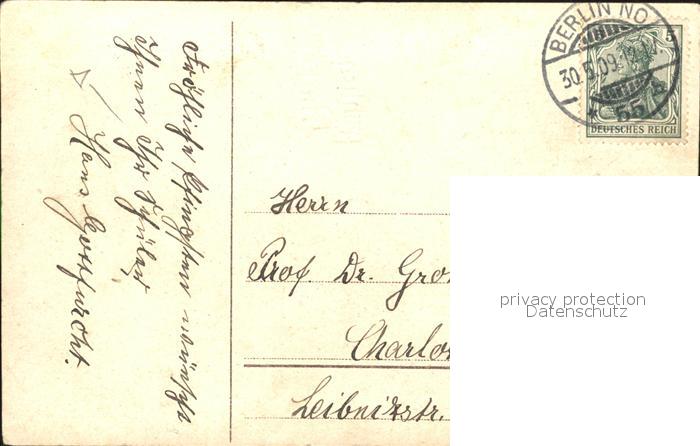 Fröhliche Pfingsten wünscht
Ihnen Ihr Schüler
Hans Gottfurcht.
BERLIN NO
30.5.09.
* 55 b
5
DEUTSCHES REICH
Herrn
Prof. Dr. Gro
Charlo
Leibnizstr.
privacy protection
Datenschutz